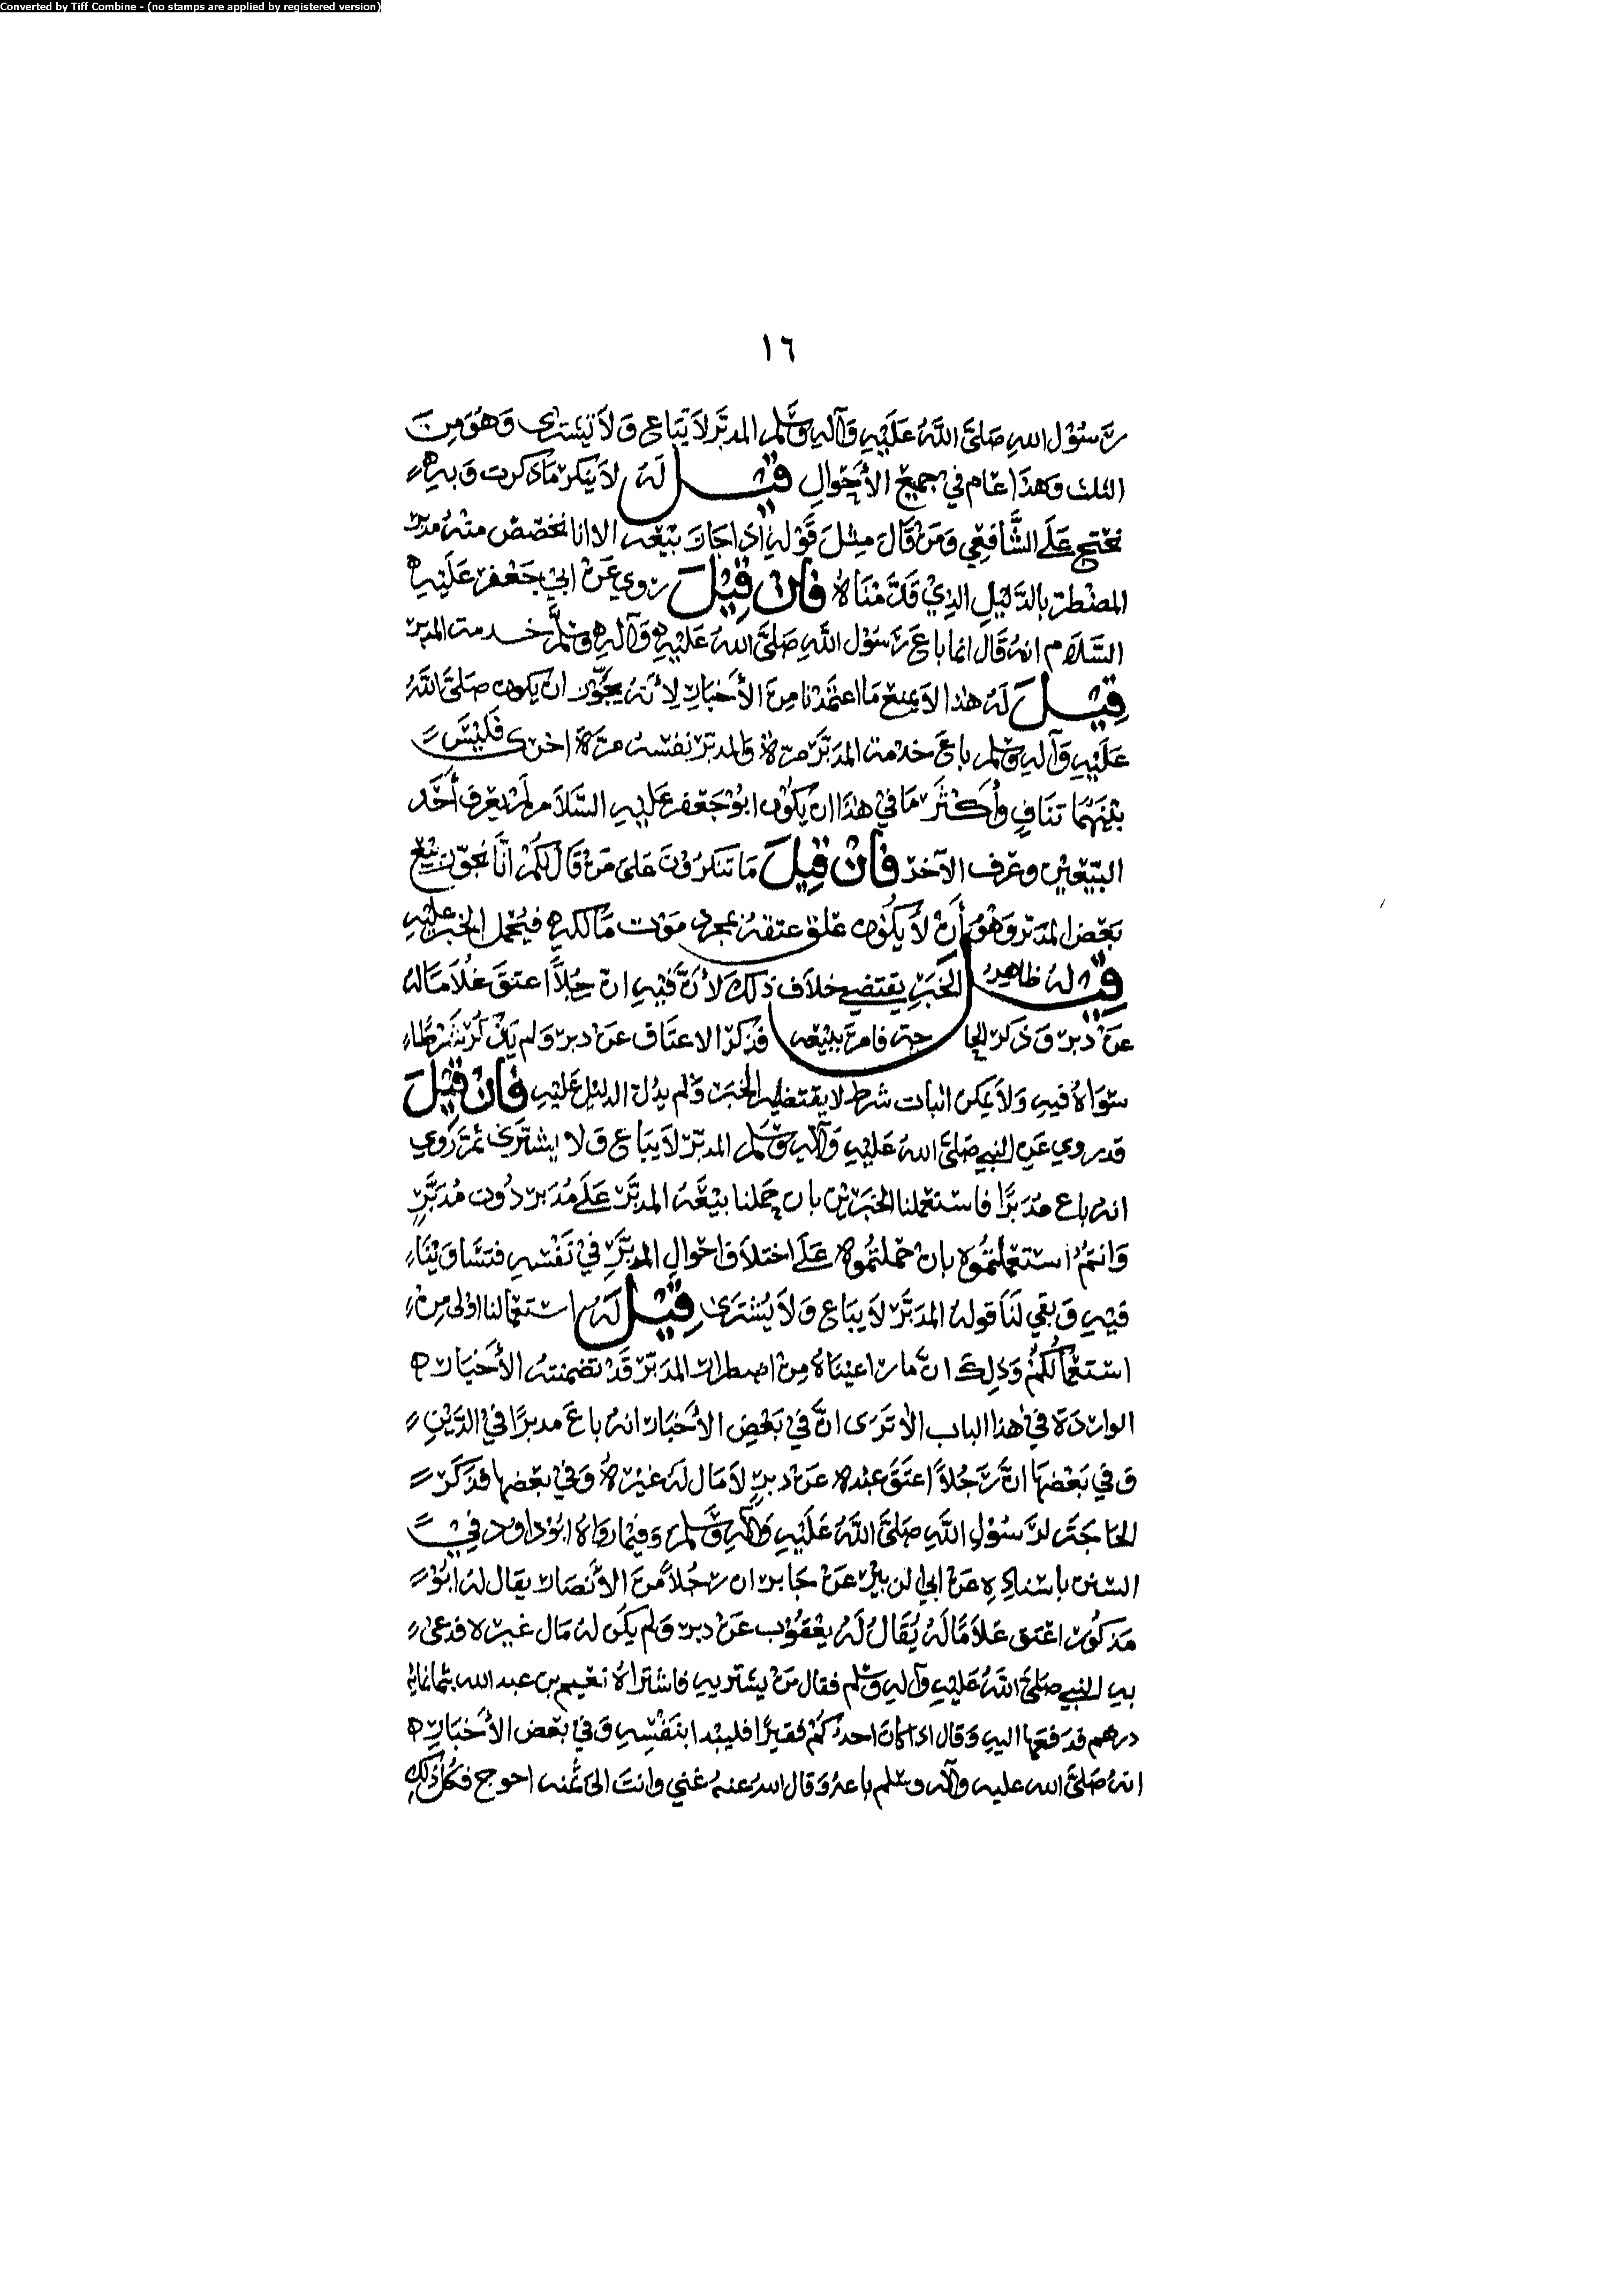 Converted by Tiff Combine - (no stamps are applied by registered version)
١٦
رَسُوْل اللهِ صَلَّىَ اللَّهُ عَلَيْهِ وَآلهِ وَسَّلم المدبَّر لاَ يُبَاع وَلاَ يُشترى وَهُوَ مِنَ
الثلث وَهذَا عَام في جميع الأحْوالِ قيْل لَهُ لاَ ينكر مَا ذكرت وَبهِ
نحتج عَلَى الشَّافعِي وَمَنْ قَالَ مِثلَ قَوْلهِ اذا جَازَ بَيْعَه الا انا نخصّصُ منْهُ مدبر
المضطر بالدَّليْلِ الذِيْ قَدَّمْنَاهُ فَانْ قِيْلَ رُوي عَنْ ابي جَعْفَر عَليْهِ
السَّلاَم انهُ قَال انما باعَ رَسُوْل اللَّهِ صَلَّىَ اللهُ عَليْهِ وَآلهِ وَسَلَّم خدمت المدبر
قِيْلَ لَهُ هذا لاَ يمنع مَا اعتمدْنا مِنَ الأَخبَارِ لأنهُ يجَوّز ان يكون صَلَىَّ اللَّهُ
عَلَيْهِ وَآلهِ وَسَلم باعَ خدمة المدبَّر مَرة وَالمدبّر نفسَهُ مرَّة اخرى فَليْسَ
بَيْنَهُمَا تنَافٍ وَأكثَر مَا فيْ هذَا ان يكوْن ابوْ جَعْفَر عَليهِ السَّلاَم لَمْ يعرف أحَد
البَيْعيْن وعَرف الآخر فَانْ قِيْلَ مَا تنكرُوْنَ عَلىَ مَنْ قَالَ لكُمْ انَّا نجوّز بَيْع
بَعْض المدَبَر وَهُوَ أَنْ لاَ يَكُوْن عَلق عتقهُ بمجرد مَوْت مَالكهِ فيُحْمل الخبر عليهِ
قيْل لهُ ظاهِرُ الخبَرِ يقتضي خلاَف ذلكَ لأنَّ فيْهِ ان رَجُلاً اعتقَ غلاَمًا لهُ
عَنْ دبر وَذكرَ الحاجة فامرَ ببيْعه فذكرَ الاعتَاق عَنْ دبر وَلم يَذْكرْ شَرْطًا
سِوَاهُ فيْهِ وَلاَ يمكن اثبات شرط لا يقتضيه الخبَر وَلم يدُل الدليل عَليْهِ فَانْ قيْلَ
قد روي عَنِ النبي صَلىَّ اللهُ عَليْهِ وَآلهِ وَسَلم المدبّر لاَ يبَاع وَلا يشترَى ثمَّ رَوي
انه باع مدَبرًا فاسْتعْملنا الخبَرَيْن بان حملنا بيْعَهُ المدبَّر عَلَى مُدَبر دوُن مُدَبَّرٍ
وَانتمْ استعْملتمُوْه بانْ حملتُموْه عَلَى اختلاَف احوالِ المدبَّرِ فيْ نَفْسهِ فتسَاوَيْنَا
فيْهِ وَبَقي لنَا قولهُ المدَبَّر لاَ يبَاع وَلاَ يُشْتَرَىْ قيْل لَهُ استعمَالنا اوْلى مِنْ
اسْتعْمالكُمْ وَذلِكَ انَّ مَا راعيْنَاهُ مِنْ اضطرار المدَبّر قَدْ تضمنتهُ الأَخبَار
الواردَة فيْ هذا الباب الاَ ترَى انَّ فيْ بَعْضِ الأَخْبَار انهُ باعَ مدبرًا فيْ الدَّيْنِ
وَفي بَعْضهَا انَّ رَّجُلاً اعتَقَ عبْدهُ عَنْ دبرٍ لاَ مَال لهُ غيْرهُ وَفيْ بعْضها فذَكَرَ
الحَاجَةَ لرَسُوْلِ اللَّهِ صَلَّىَ اللَّهُ عَلَيْهِ وَآلهِ وَسَّلم وَفيْمَا رَوَاهُ ابُوْ داوُد فيْ
السنن باسْنادِهِ عَنْ ابي الزبيْر عَنْ جَابر ان رَجُلاً منَ الأنْصَار يقَال لهُ ابُوْ
مَذكُوْر اعْتق غلاَمًا لَهُ يُقَالُ لَهُ يعْقوُب عَنْ دبر وَلم يكن لهُ مَال غيره فدعى
بهِ النبي صَلىَّ اللَّهُ عَليْهِ وَآلهِ وَسلم فقال مَنْ يشتريهِ فاشترَاهُ نعيم بن عبد الله بثمانمائة
درهم فدَفعَهَا اليهِ وَقال اذا كانَ احدُكُمْ فقيرًا فليبْدا بنَفْسِهِ وَفيْ بعْض الأَخبَارِ
انهُ صَلَّى الله عليه وآله وسلم باعهُ وَقال اللهُ عنهُ غني وانتَ الى ثمنه احوج فكُلّ ذلك